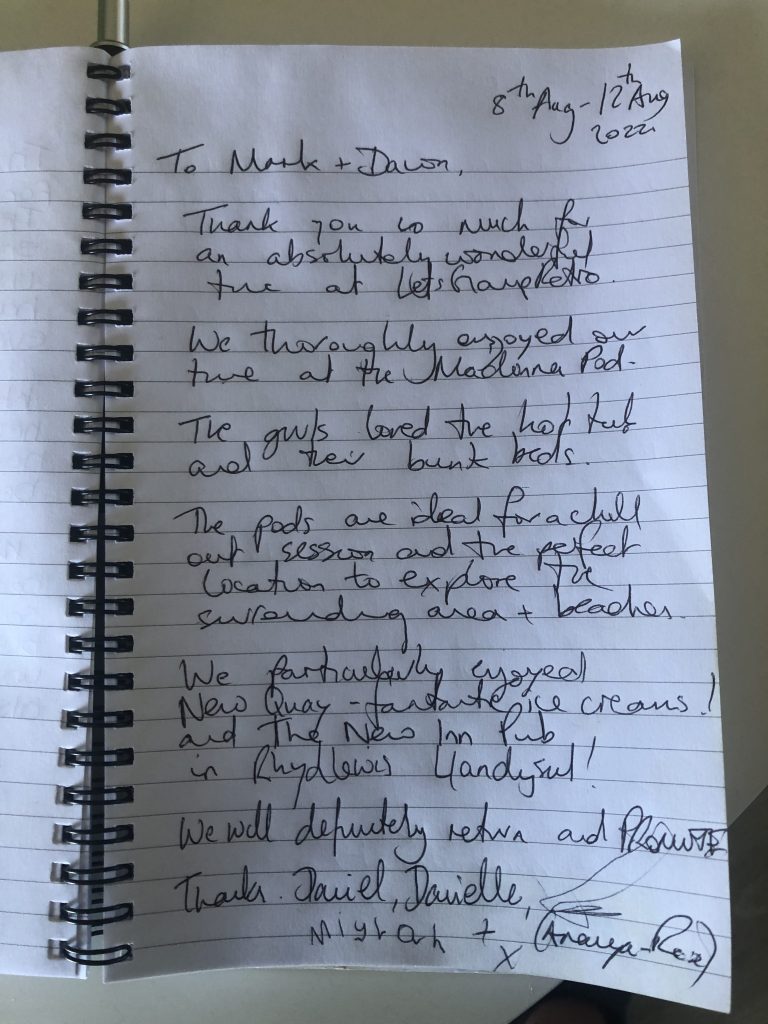 8th Aug - 12th Aug
2022
To Mark + Dawn,
Thank you so much for
an absolutely wonderful
time at LetsGlampRetro.
We thoroughly enjoyed our
time at the Madonna Pod.
The girls loved the hot tub
and their bunk beds.
The pods are ideal for a chill
out session and the perfect
location to explore the
surrounding area + beaches.
We particularly enjoyed
New Quay - fantastic ice creams!
and The New Inn Pub
in Rhydlewis Llandysul!
We will definitely return and PROMOTE
Thanks. Daniel, Danielle,
Miyrah + (Anaya-Rae)
x